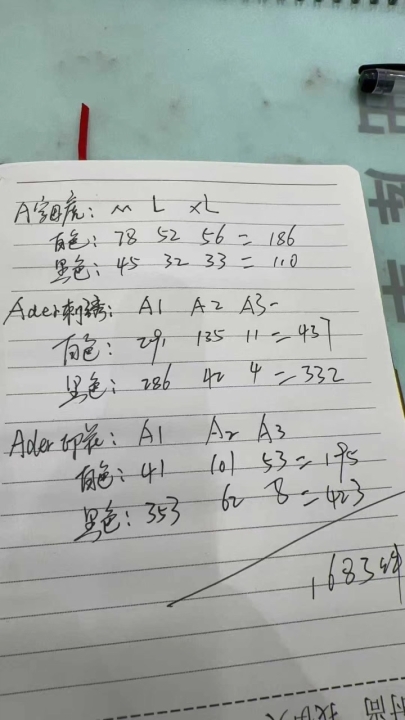 A字母虎: M L XL
白色: 78 52 56 = 186
黑色: 45 32 33 = 110
Ader刺绣: A1 A2 A3
白色: 291 135 11 = 437
黑色: 286 42 4 = 332
Ader印花: A1 A2 A3
白色: 41 101 53 = 195
黑色: 353 62 8 = 423
1683件
出库